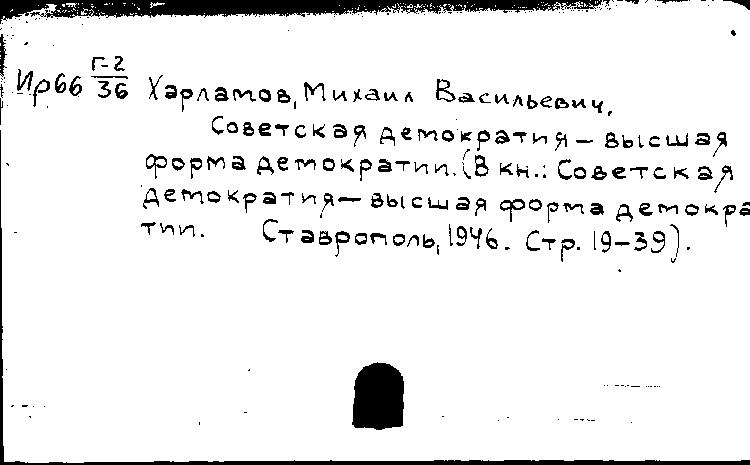 Ир66 Г-2/36 Харламов, Михаил Васильевич.
Советская демократия — высшая
форма демократии. (В кн.: Советская
демократия — высшая форма демокра
тии. Ставрополь, 1946. Стр. 19-39).